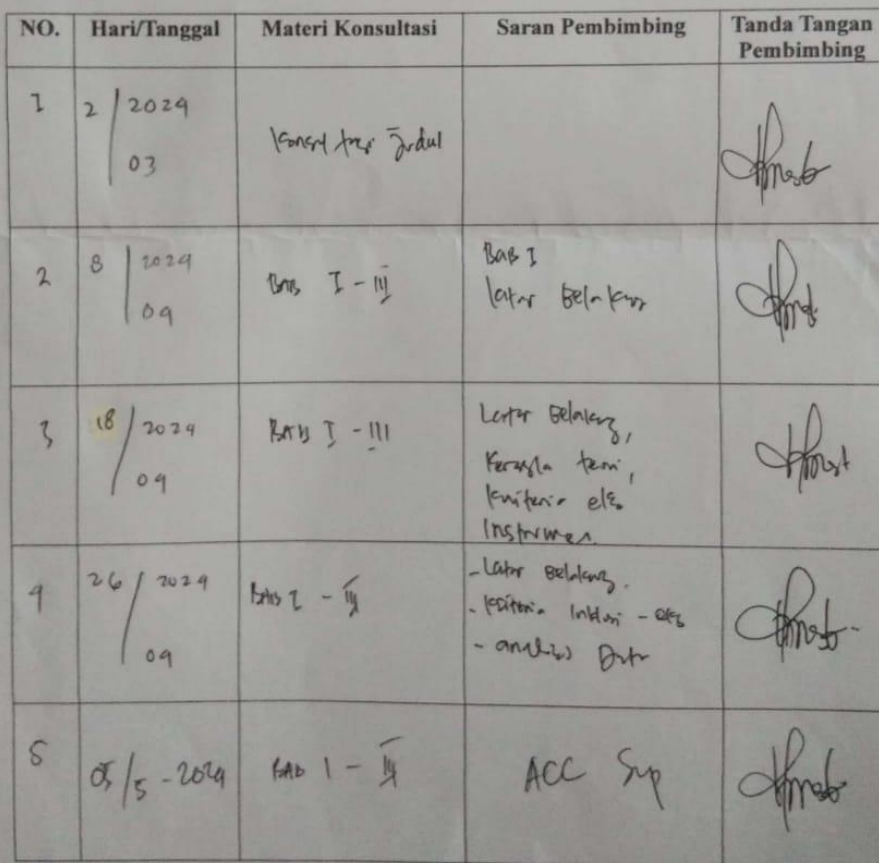 NO. Hari/Tanggal Materi Konsultasi Saran Pembimbing Tanda Tangan
Pembimbing
1 2 / 2024
03
Judul
2 8 / 2024
04
BAB I - III
BAB I
latar Belakang
3 18 / 2024
04
BAB I - III
Latar Belakang,
Kerangka teori,
kriteria eks
Instrumen
4 26 / 2024
04
BAB I - III
- Latar Belakang.
- kriteria Inklusi - eks
- analisis Data
5 /5 - 2024
BAB I - III
ACC